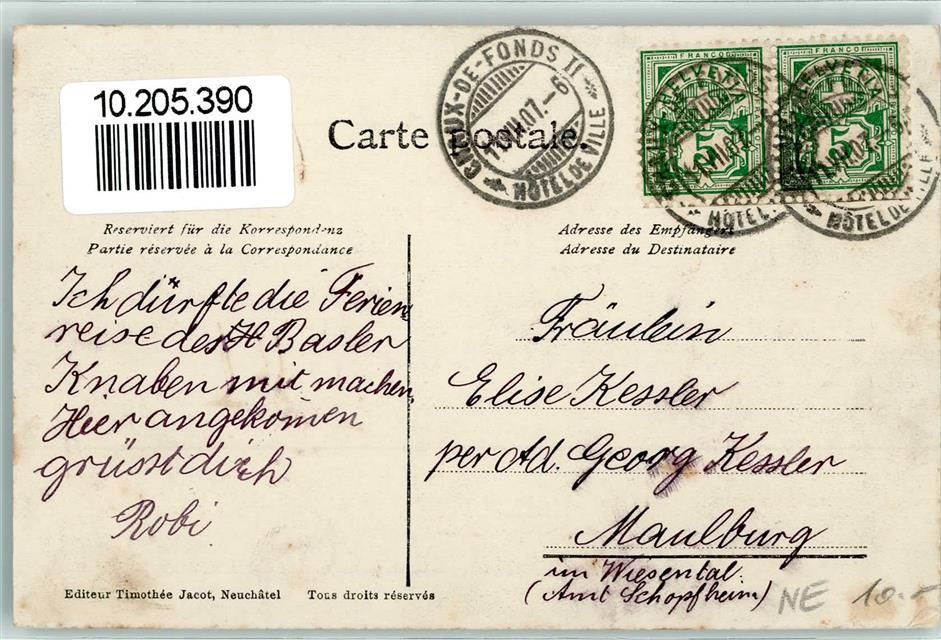 10.205.390
Carte postale.
CHAUX-DE-FONDS II
HÔTEL DE VILLE
FRANCO
HELVETIA
5
FRANCO
HELVETIA
5
HÔTEL
HÔTEL DE VILLE
Reserviert für die Korrespondenz
Partie réservée à la Correspondance
Adresse des Empfängers
Adresse du Destinataire
Ich dürfte die Ferien
reise des Basler
Knaben mit machen.
Hier angekomen
grüsst dich
Robi.
Fräulein
Elise Kessler
per Ad. Georg Kessler
Maulburg
im Wiesental.
(Amt Schopfheim)
NE 10.-
Editeur Timothée Jacot, Neuchâtel Tous droits réservés